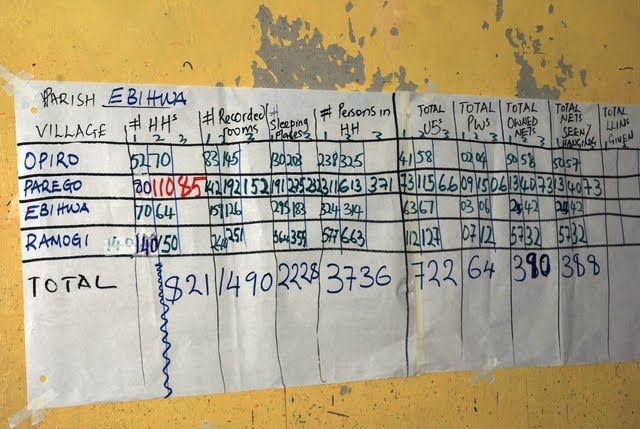 PARISH EBIHWA
VILLAGE # HHs # Recorded rooms # Sleeping Places # Persons in HH TOTAL U5s TOTAL PWs TOTAL OWNED NETS TOTAL NETS SEEN/HANGING TOTAL LLINs GIVEN
OPIRO 52 70 83 145 80 203 238 325 41 58 02 04 50 58 50 57
PAREGO 80 110 85 142 192 152 191 275 232 311 613 371 73 115 66 09 15 06 13 40 73 13 40 73
EBIHWA 70 64 159 126 295 183 324 314 63 67 03 06 42 42
RAMOGI 140 150 240 251 364 359 577 663 112 127 07 12 57 32 57 32
TOTAL 821 1490 2228 3736 722 64 390 388